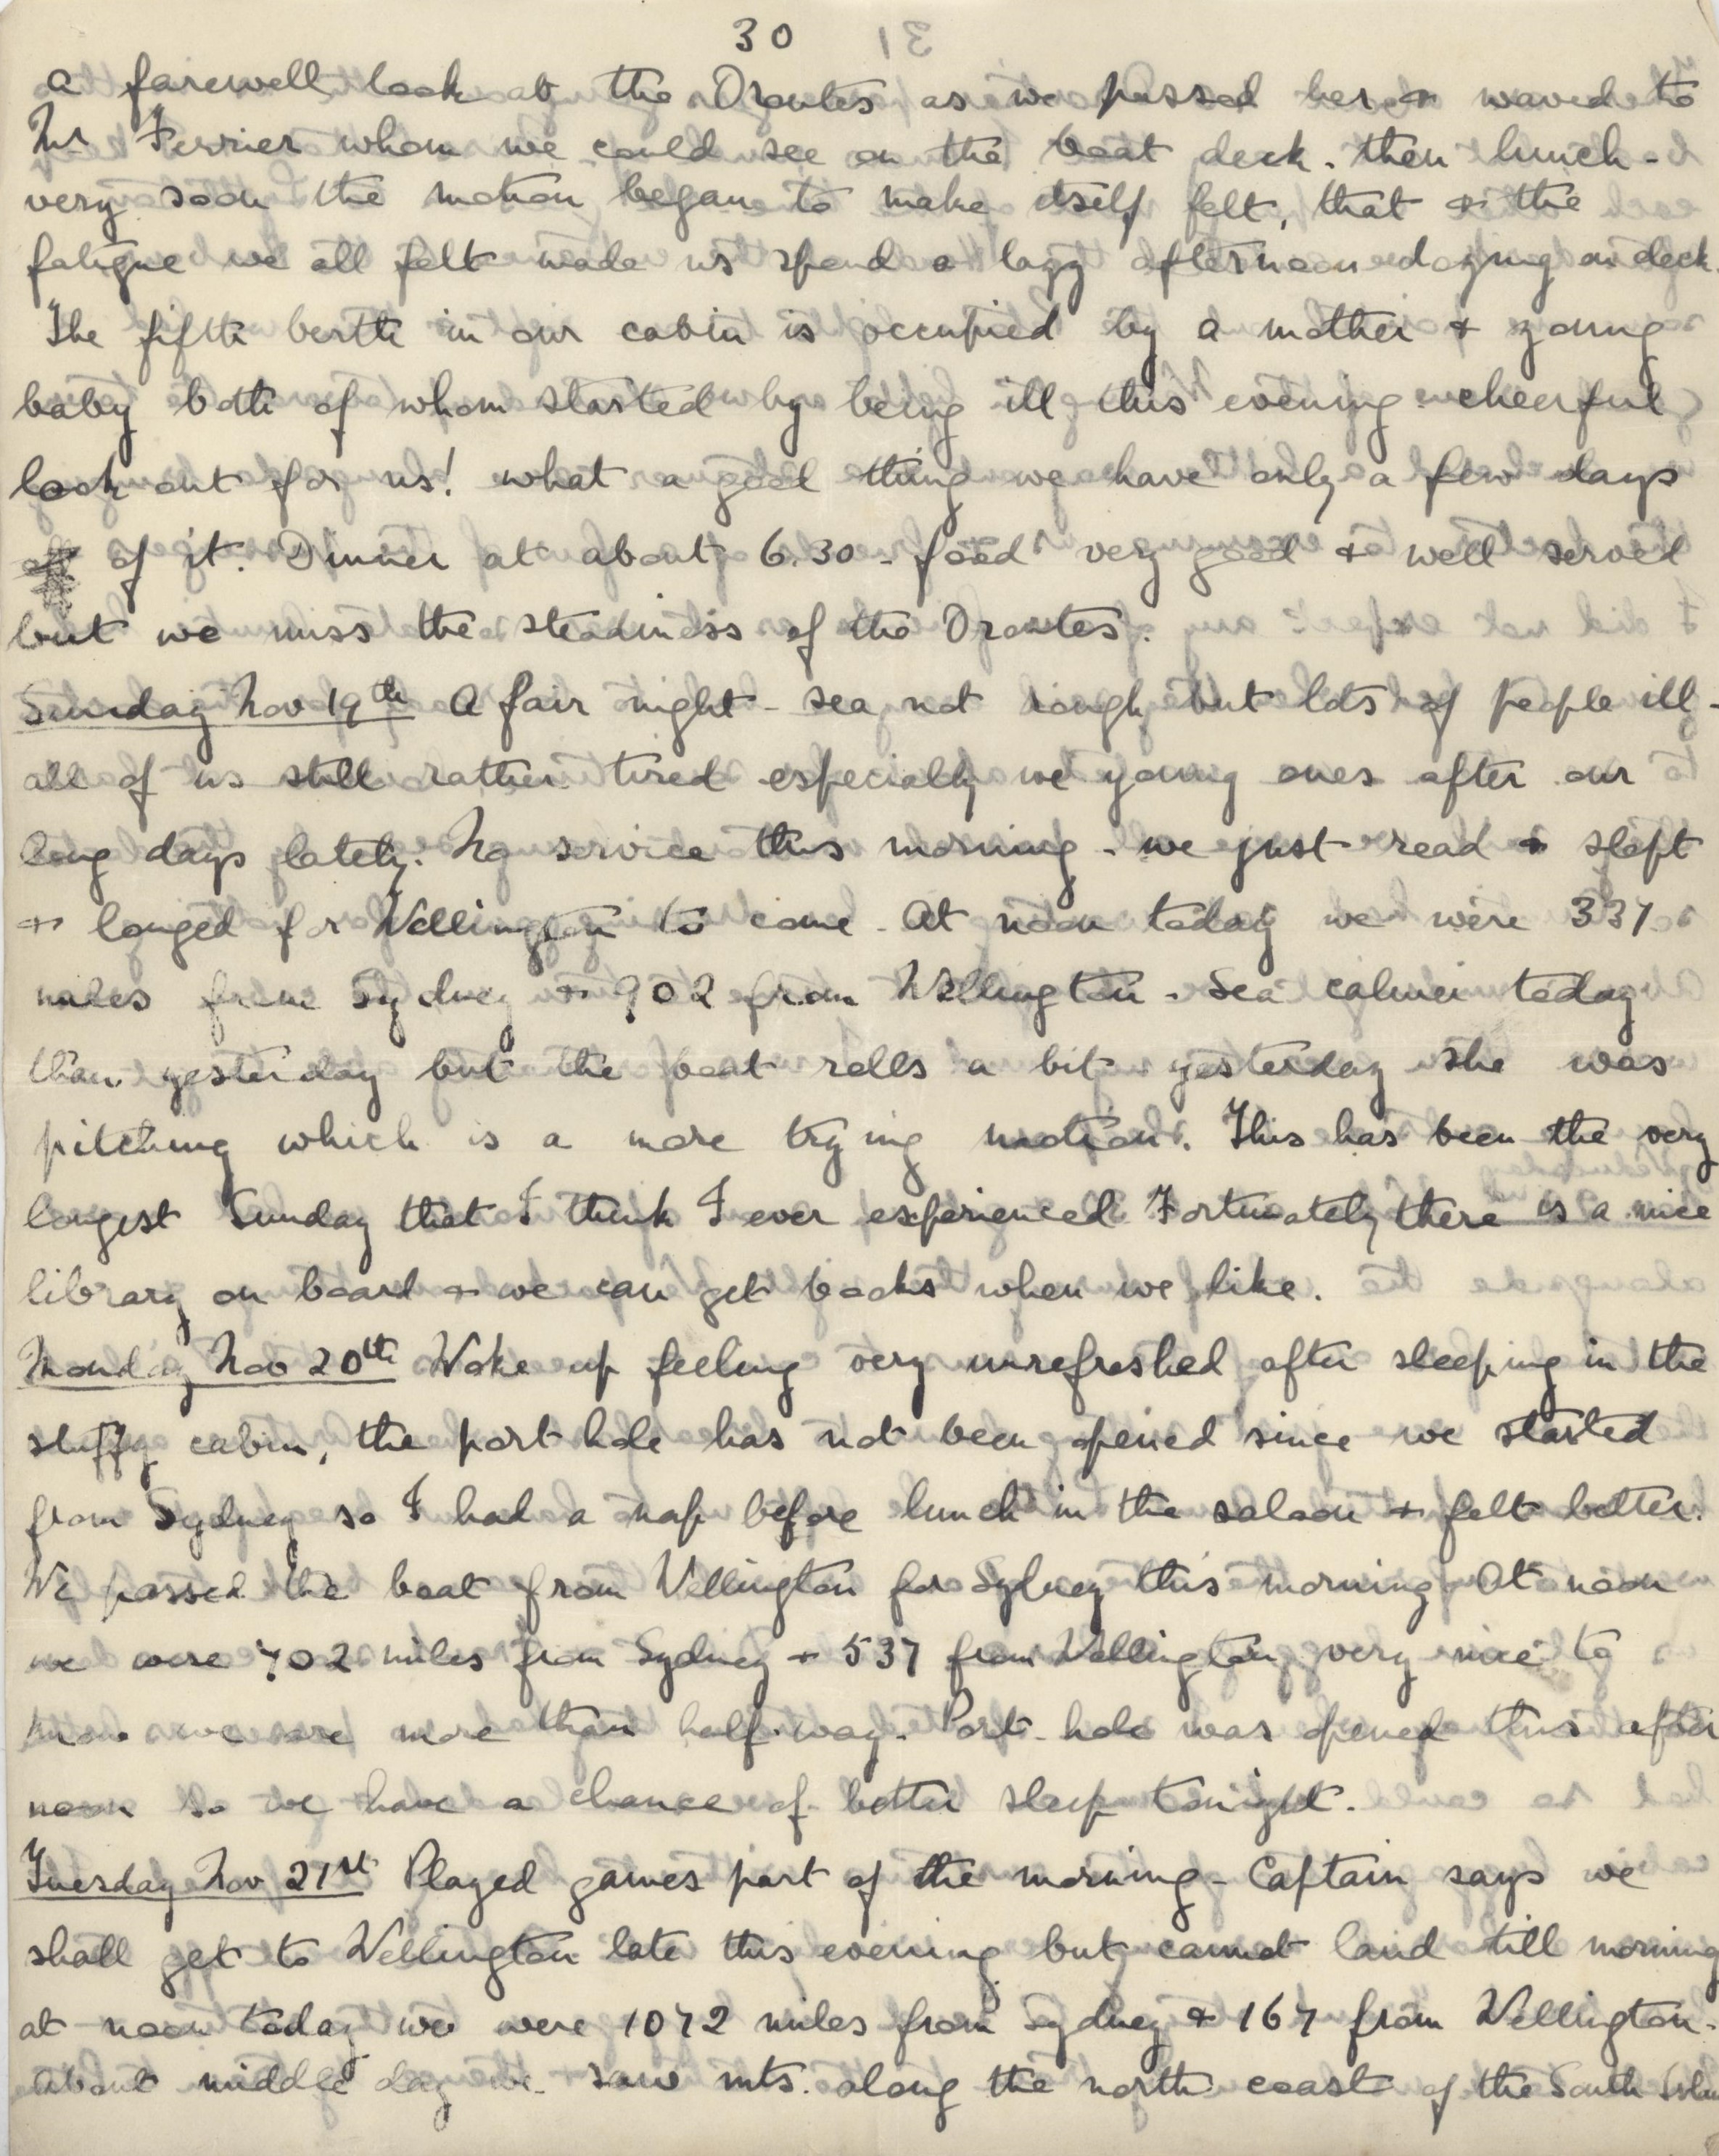 30
a farewell look at the Orontes as we passed her & waved to
Mr Ferrier whom we could see on the boat deck. then lunch -
very soon the motion began to make itself felt, that & the
fatigue we all felt made us spend a lazy afternoon dozing on deck.
The fifth berth in our cabin is occupied by a mother & young
baby both of whom started by being ill this evening - cheerful
look out for us! what a good thing we have only a few days
of it. Dinner at about 6.30 - food very good & well served
but we miss the steadiness of the Orontes.
Sunday Nov 19th A fair night - sea not rough but lots of people ill -
all of us still rather tired especially we young ones after our
long days lately. No service this morning - we just read & slept
& longed for Wellington to come. At noon today we were 337
miles from Sydney & 902 from Wellington. Sea calmer today
than yesterday but the boat rolls a bit yesterday she was
pitching which is a more trying motion. This has been the very
longest Sunday that I think I ever experienced. Fortunately there is a nice
library on board & we can get books when we like.
Monday Nov 20th Woke up feeling very unrefreshed after sleeping in the
stuffy cabin, the port hole has not been opened since we started
from Sydney so I had a nap before lunch in the saloon & felt better.
We passed the boat from Wellington for Sydney this morning. At noon
we were 702 miles from Sydney & 537 from Wellington very nice to
know we are more than half-way. Port-hole was opened this after
noon so we have a chance of better sleep tonight.
Tuesday Nov 21st Played games part of the morning - Captain says we
shall get to Wellington late this evening but cannot land till morning
at noon today we were 1072 miles from Sydney & 167 from Wellington.
about middle day we saw mts. along the north coast of the South Islan